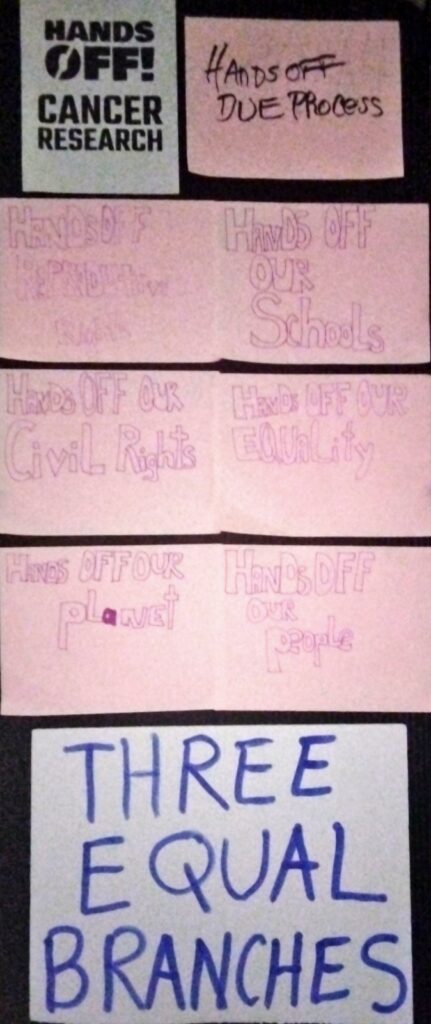 HANDS
OFF!
CANCER
RESEARCH
HANDS OFF
DUE PROCESS
HANDS OFF
REPRODUCTIVE
RIGHTS
HANDS OFF
OUR
Schools
HANDS OFF OUR
CiviL Rights
HANDS OFF OUR
EQUALity
HANDS OFF OUR
planet
HANDS OFF
OUR
people
THREE
EQUAL
BRANCHES